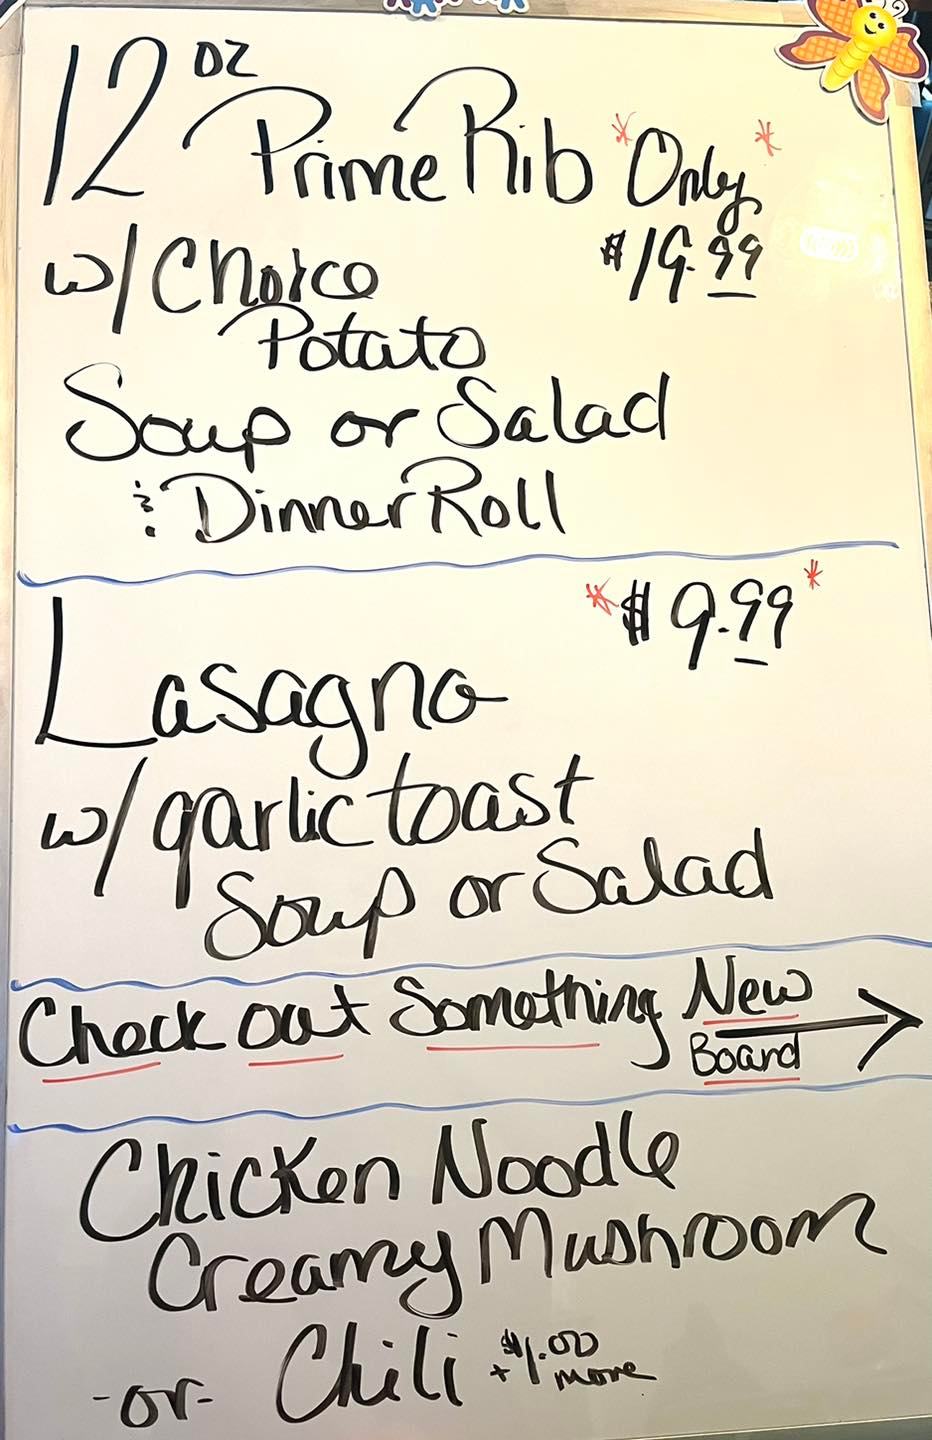 12 oz Prime Rib *Only*
w/ Choice $19.99
Potato
Soup or Salad
& Dinner Roll
*$9.99*
Lasagna
w/ garlic toast
Soup or Salad
Check out Something New
Board
Chicken Noodle
Creamy Mushroom
-or- Chili + $1.00
more